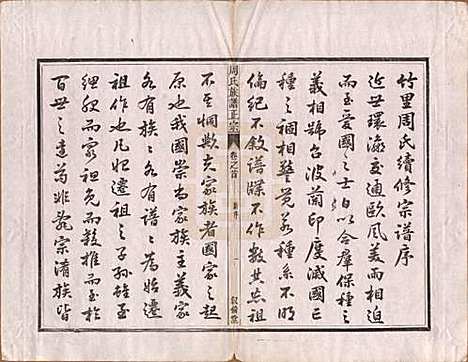 竹里周氏續修宗譜序
近世環瀛交通歐風美雨相逼
而至愛國之士汲汲以合羣保種之
義相號召波蘭印度滅國亡
種之禍相警覺若種系不明
倫紀不敘譜牒不作數其忘祖
周氏族譜正宗
卷之首
新序
一
敘倫堂
不至惘欺夫家族者國家之起
原也我國崇尚家族主義家
各有族族各有譜譜為始遷
祖作也凡始遷祖之子孫雖至
細胞而寡祖免而親推而至於
百世之遠
宗清族皆